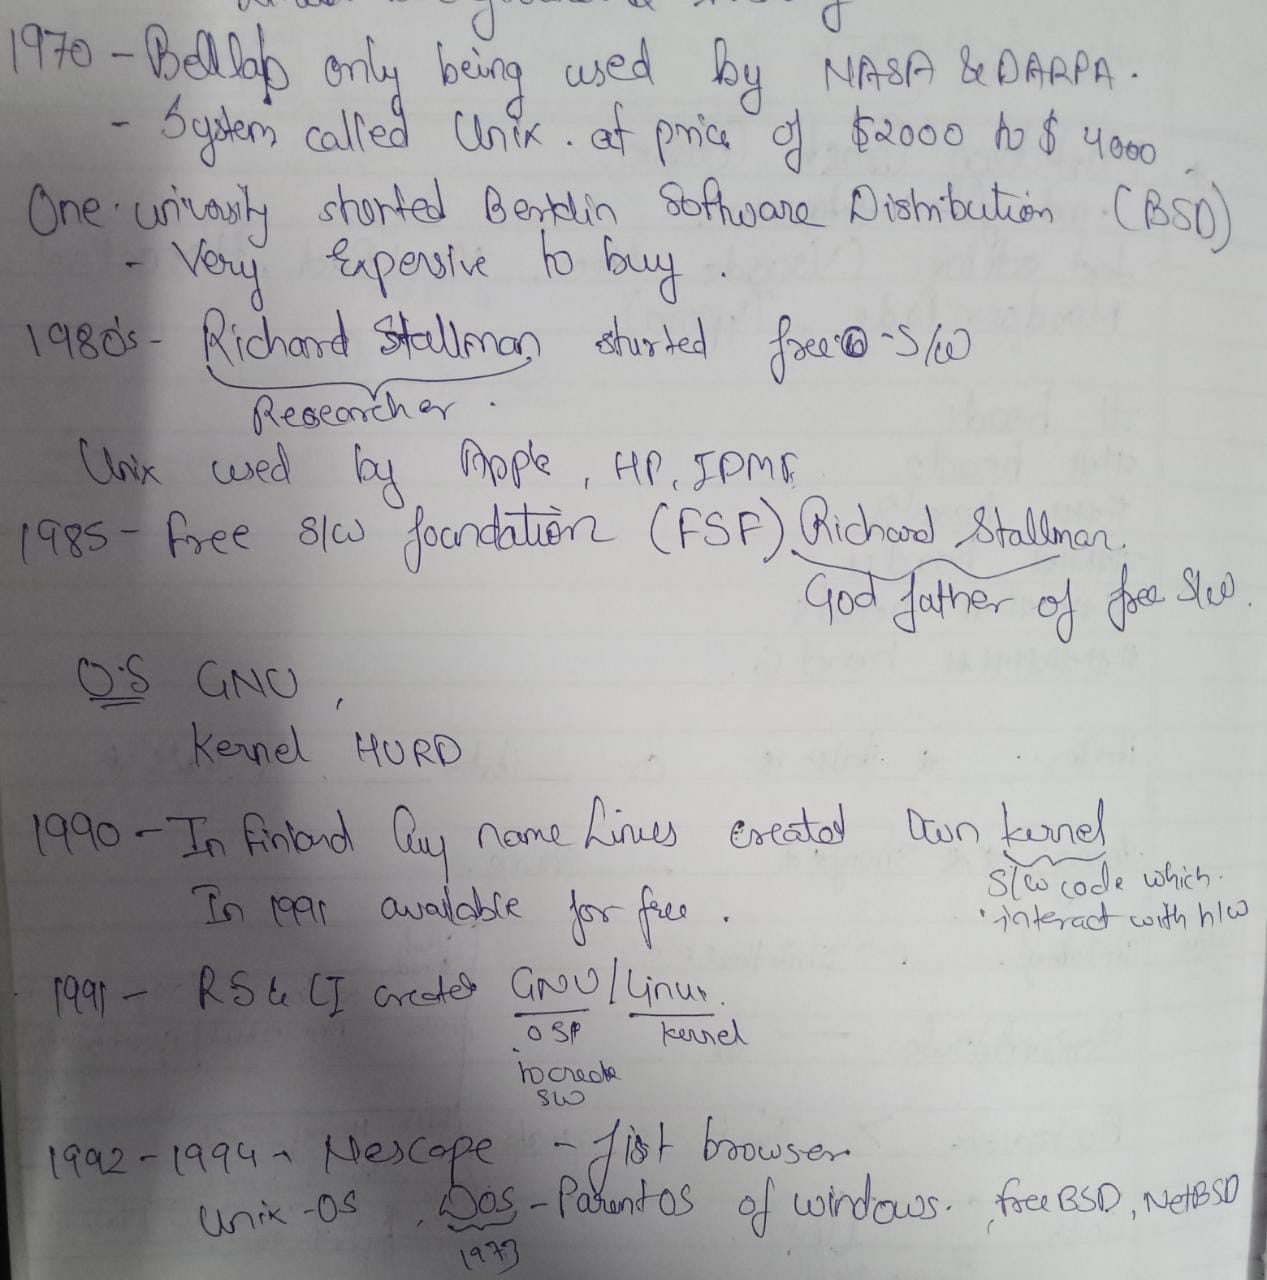 1970 - Bellab only being used by NASA & DARPA.
- System called Unix. at price of $2000 to $4000
One university started Berklin Software Distribution (BSD)
- Very Expensive to buy.
1980's - Richard Stallman started free - S/W
Researcher.
Unix used by Apple, HP,
1985 - Free S/W foundation (FSF) Richard Stallman.
God father of free S/W.
O.S GNU,
Kernel HURD
1990 - In Finland Guy name Linus created Own kernel
S/W code which
interact with h/w
In 1991 available for free.
1991 - RS & created GNU/Linux.
kernel
to create
SW
1992 - 1994 - Nescape - fist browser.
Unix - OS, Dos - Parent OS of windows. free BSD, NetBSD
1973